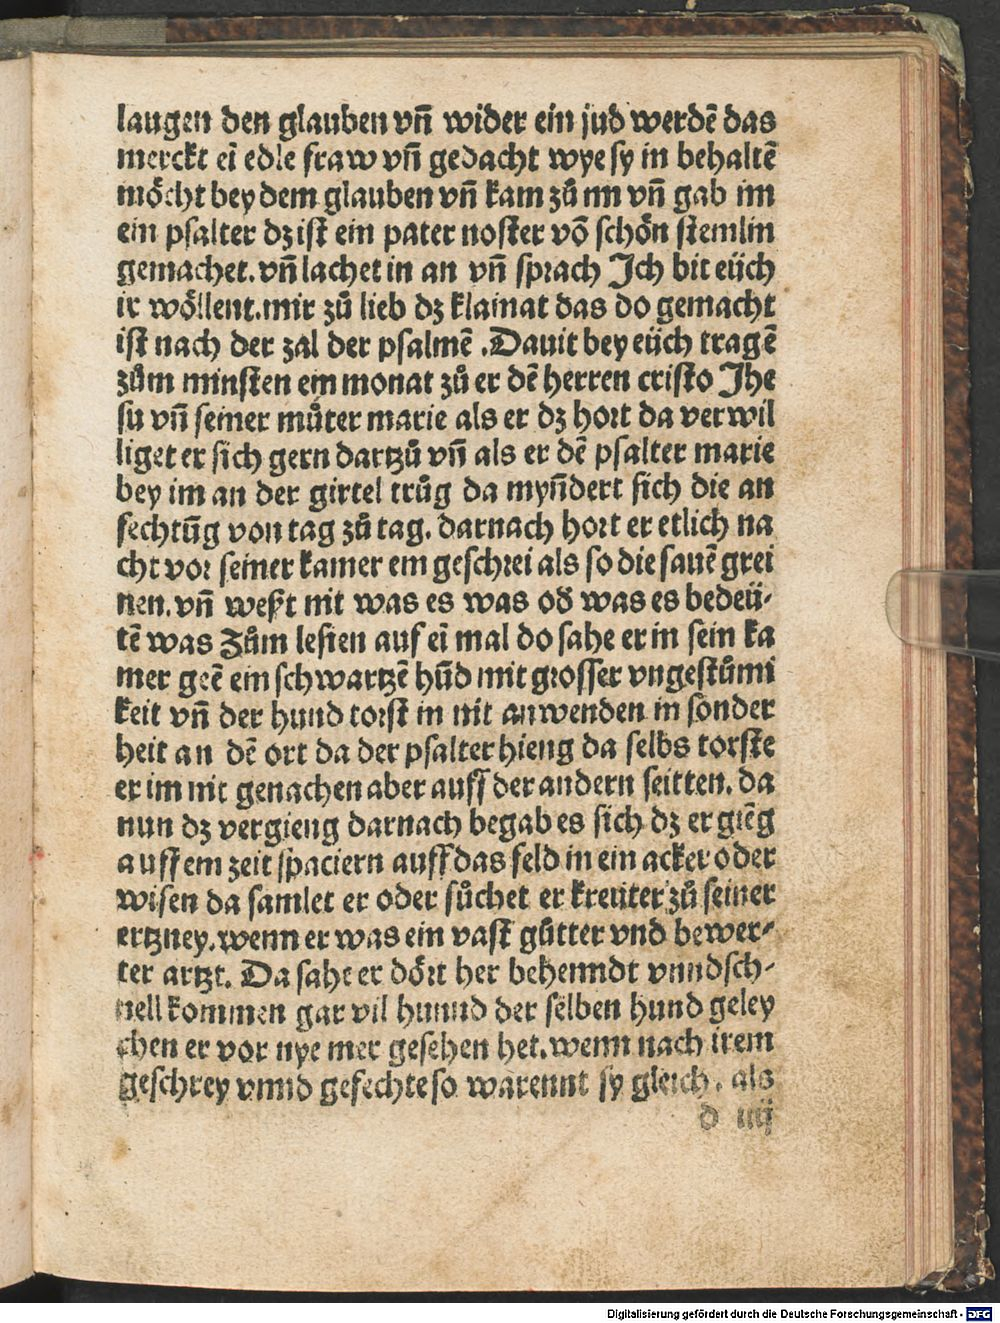 laugen den glauben vñ wider ein jud werdē das
merckt eī edle fraw vñ gedacht wye sy in behaltē
möcht bey dem glauben vñ kam zů im vñ gab im
ein psalter dz ist ein pater noster vō schön stemlin
gemachet. vñ lachet in an vñ sprach Jch bit eüch
ir wöllent. mir zů lieb dz klainat das do gemacht
ist nach der zal der psalmē .Dauit bey eüch tragē
zům minsten ein monat zů er dē herren cristo Jhe
su vñ seiner můter marie als er dz hort da verwil
liget er sich gern dartzů vñ als er dē psalter marie
bey im an der girtel trůg da myn̄dert sich die an
fechtūg von tag zů tag. darnach hort er etlich na
cht vor seiner kamer ein geschrei als so die sauē grei
nen. vñ weßt nit was es was od̄ was es bedeü-
tē was Zům lesten auf eī mal do sahe er in sein ka
mer geē ein schwartzē hūd mit grosser vngestůmi
keit vñ der hund torst in nit anwenden in sonder
heit an dē ort da der psalter hieng da selbs torste
er im nit genachen aber auff der andern seitten. da
nun dz vergieng darnach begab es sich dz er giēg
auff ein zeit spaciern auff das feld in ein acker oder
wisen da samlet er oder sůchet er kreüter zů seiner
ertzney. wenn er was ein vast gůtter vnd bewer-
ter artzt. Da sahe er dört her behenndt vnnd sch-
nell kommen gar vil hunnd der selben hund geley
chen er vor nye mer gesehen het. wenn nach irem
geschrey vnnd gefechte so warennt sy gleich. als
d iiij
Digitalisierung gefördert durch die Deutsche Forschungsgemeinschaft - DFG